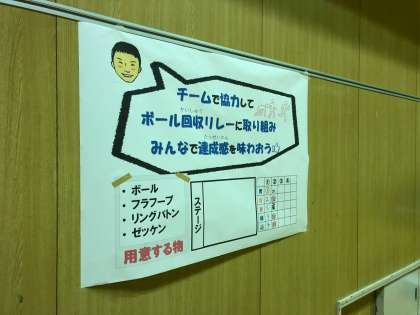 チームで協力して
かいしゅう
ボール回収リレーに取り組み
たっせいかん
みんなで達成感を味わおう☆
・ボール
・フラフープ
・リングバトン
・ゼッケン
用意する物
ステージ
① ② ③ ④